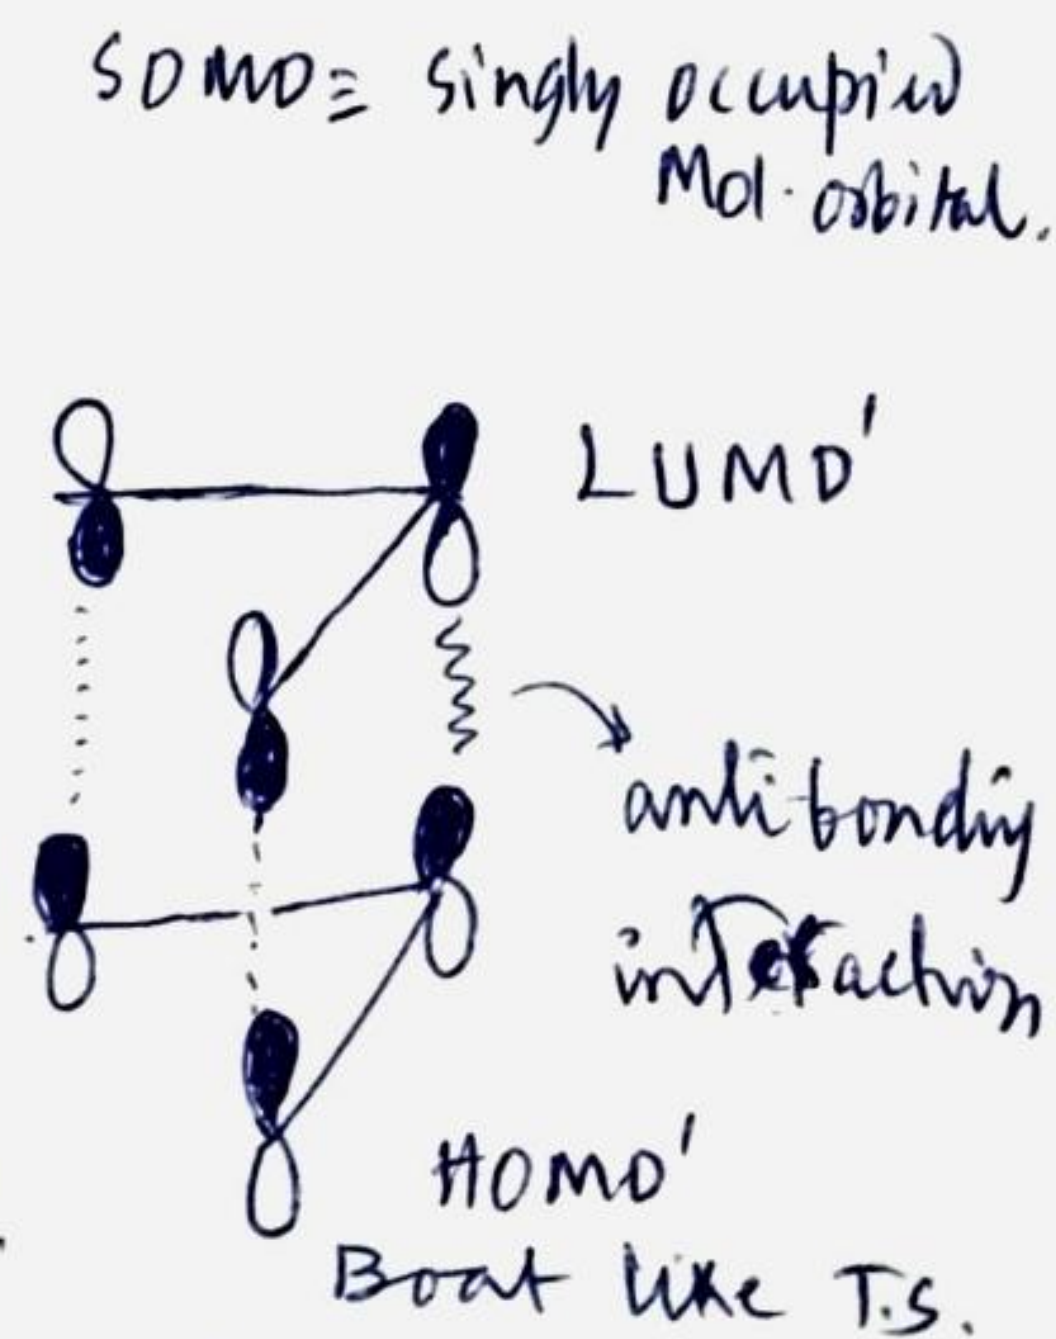 SOMO ≡ Singly occupied
Mol. orbital.
LUMO'
antibonding
interaction
HOMO'
Boat like T.S.